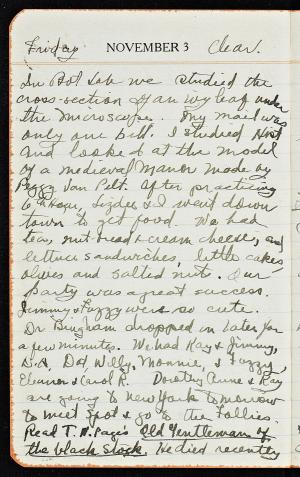 Friday NOVEMBER 3 Clear.
In Bot Lab we studied the
cross-section of an ivy leaf under
the microscope. My mail was
only one bill. I studied Hist
and looked at the model
of a medieval Manor made by
Peggy Van Pelt. After practicing
6th hour, Lizdee & I went down
town to get food. We had
tea, nut-bread & cream cheese, and
lettuce sandwiches, little cakes,
olives and salted nuts. Our
party was a great success.
Jimmy & Fuzzy were so cute.
Dr Bingham dropped in later for
a few minutes. We had Kay & Jimmy,
D.A., Dot, Willy, Monnie, & Fuzzy,
Eleanor & Carol R. Dorothy Anne & Kay
are going to New York tomorrow
to meet Spot & go to the Follies.
Read T. N. Page's Old Gentleman of
the black stock. He died recently